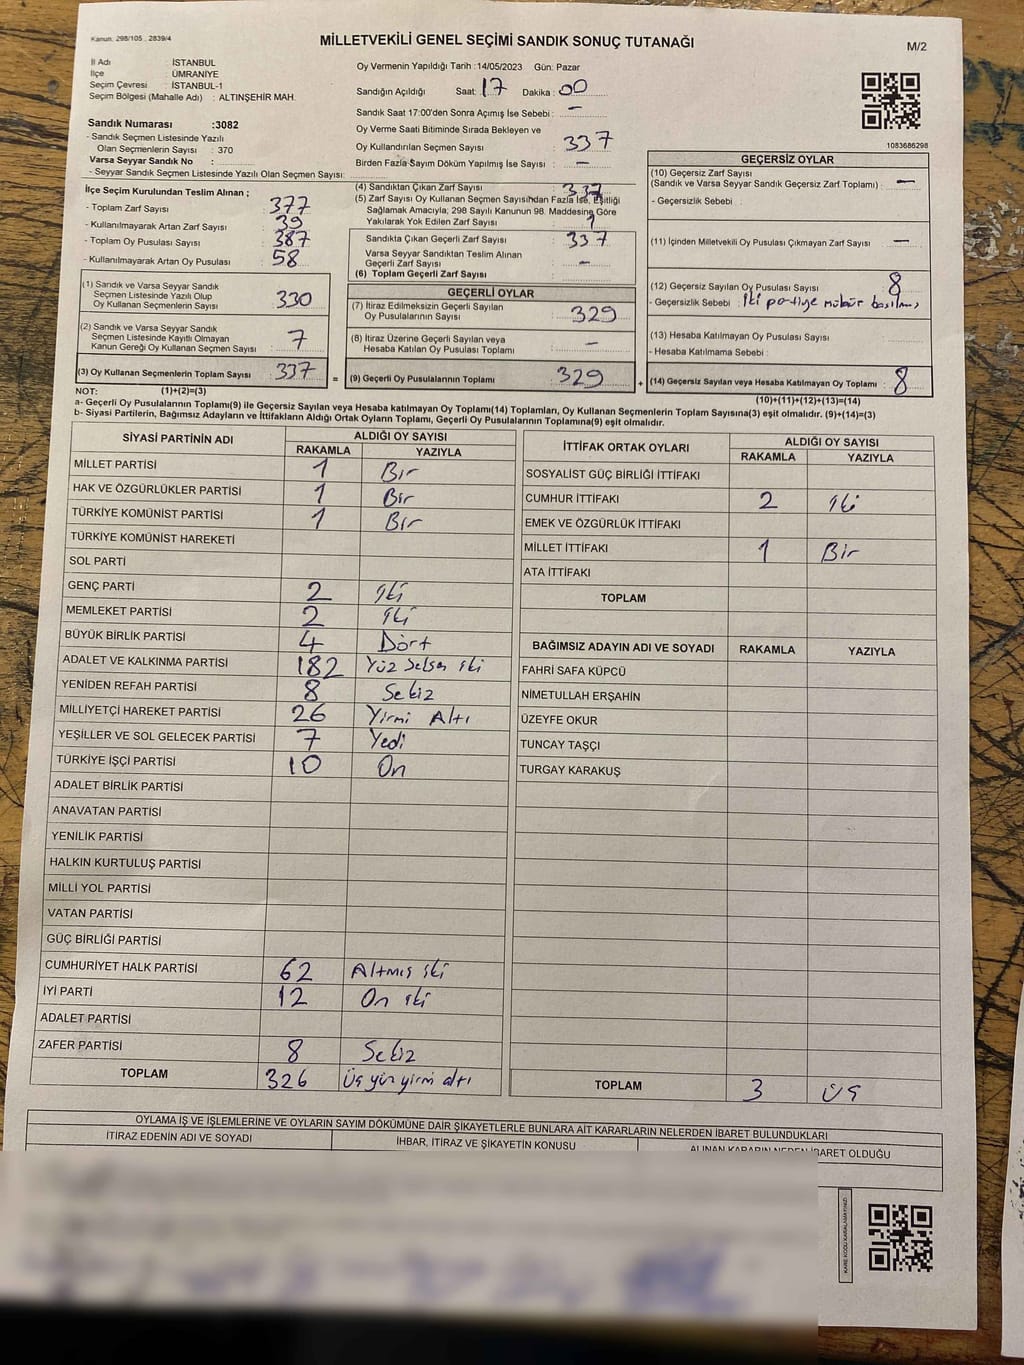 Kanun: 298/105, 2839/4
MİLLETVEKİLİ GENEL SEÇİMİ SANDIK SONUÇ TUTANAĞI
M/2
İl Adı : İSTANBUL
İlçe : ÜMRANİYE
Seçim Çevresi : İSTANBUL-1
Seçim Bölgesi (Mahalle Adı) : ALTINŞEHİR MAH.
Oy Vermenin Yapıldığı Tarih : 14/05/2023 Gün: Pazar
Sandığın Açıldığı Saat: 17 Dakika : 00
Sandık Saat 17:00'den Sonra Açımış İse Sebebi : -
Oy Verme Saati Bitiminde Sırada Bekleyen ve
Oy Kullandırılan Seçmen Sayısı : 337
Birden Fazla Sayım Döküm Yapılmış İse Sayısı : -
Sandık Numarası :3082
- Sandık Seçmen Listesinde Yazılı
Olan Seçmenlerin Sayısı : 370
Varsa Seyyar Sandık No :
- Seyyar Sandık Seçmen Listesinde Yazılı Olan Seçmen Sayısı:
1083686298
İlçe Seçim Kurulundan Teslim Alınan ;
- Toplam Zarf Sayısı : 377
- Kullanılmayarak Artan Zarf Sayısı : 39
- Toplam Oy Pusulası Sayısı : 387
- Kullanılmayarak Artan Oy Pusulası : 58
(1) Sandık ve Varsa Seyyar Sandık
Seçmen Listesinde Yazılı Olup
Oy Kullanan Seçmenlerin Sayısı : 330
(2) Sandık ve Varsa Seyyar Sandık
Seçmen Listesinde Kayıtlı Olmayan
Kanun Gereği Oy Kullanan Seçmen Sayısı : 7
(3) Oy Kullanan Seçmenlerin Toplam Sayısı : 337
(4) Sandıktan Çıkan Zarf Sayısı : 337
(5) Zarf Sayısı Oy Kullanan Seçmen Sayısından Fazla İse, Eşitliği
Sağlamak Amacıyla, 298 Sayılı Kanunun 98. Maddesine Göre
Yakılarak Yok Edilen Zarf Sayısı :
Sandıkta Çıkan Geçerli Zarf Sayısı : 337
Varsa Seyyar Sandıktan Teslim Alınan
Geçerli Zarf Sayısı : -
(6) Toplam Geçerli Zarf Sayısı :
GEÇERLİ OYLAR
(7) İtiraz Edilmeksizin Geçerli Sayılan
Oy Pusulalarının Sayısı : 329
(8) İtiraz Üzerine Geçerli Sayılan veya
Hesaba Katılan Oy Pusulası Toplamı : -
= (9) Geçerli Oy Pusulalarının Toplamı : 329
GEÇERSİZ OYLAR
(10) Geçersiz Zarf Sayısı
(Sandık ve Varsa Seyyar Sandık Geçersiz Zarf Toplamı) : -
- Geçersizlik Sebebi :
(11) İçinden Milletvekili Oy Pusulası Çıkmayan Zarf Sayısı : -
(12) Geçersiz Sayılan Oy Pusulası Sayısı : 8
- Geçersizlik Sebebi : İki partiye mühür basılmış
(13) Hesaba Katılmayan Oy Pusulası Sayısı :
- Hesaba Katılmama Sebebi :
+ (14) Geçersiz Sayılan veya Hesaba Katılmayan Oy Toplamı : 8
NOT: (1)+(2)=(3)
(10)+(11)+(12)+(13)=(14)
a- Geçerli Oy Pusulalarının Toplamı(9) ile Geçersiz Sayılan veya Hesaba katılmayan Oy Toplamı(14) Toplamları, Oy Kullanan Seçmenlerin Toplam Sayısına(3) eşit olmalıdır. (9)+(14)=(3)
b- Siyasi Partilerin, Bağımsız Adayların ve İttifakların Aldığı Ortak Oyların Toplamı, Geçerli Oy Pusulalarının Toplamına(9) eşit olmalıdır.
SİYASİ PARTİNİN ADI ALDIĞI OY SAYISI
RAKAMLA YAZIYLA
MİLLET PARTİSİ 1 Bir
HAK VE ÖZGÜRLÜKLER PARTİSİ 1 Bir
TÜRKİYE KOMÜNİST PARTİSİ 1 Bir
TÜRKİYE KOMÜNİST HAREKETİ
SOL PARTİ
GENÇ PARTİ 2 iki
MEMLEKET PARTİSİ 2 iki
BÜYÜK BİRLİK PARTİSİ 4 Dört
ADALET VE KALKINMA PARTİSİ 182 Yüz Seksen iki
YENİDEN REFAH PARTİSİ 8 Sekiz
MİLLİYETÇİ HAREKET PARTİSİ 26 Yirmi Altı
YEŞİLLER VE SOL GELECEK PARTİSİ 7 Yedi
TÜRKİYE İŞÇİ PARTİSİ 10 On
ADALET BİRLİK PARTİSİ
ANAVATAN PARTİSİ
YENİLİK PARTİSİ
HALKIN KURTULUŞ PARTİSİ
MİLLİ YOL PARTİSİ
VATAN PARTİSİ
GÜÇ BİRLİĞİ PARTİSİ
CUMHURİYET HALK PARTİSİ 62 Altmış iki
İYİ PARTİ 12 On iki
ADALET PARTİSİ
ZAFER PARTİSİ 8 Sekiz
TOPLAM 326 Üç yüz yirmi altı
İTTİFAK ORTAK OYLARI ALDIĞI OY SAYISI
RAKAMLA YAZIYLA
SOSYALİST GÜÇ BİRLİĞİ İTTİFAKI
CUMHUR İTTİFAKI 2 iki
EMEK VE ÖZGÜRLÜK İTTİFAKI
MİLLET İTTİFAKI 1 Bir
ATA İTTİFAKI
TOPLAM
BAĞIMSIZ ADAYIN ADI VE SOYADI RAKAMLA YAZIYLA
FAHRİ SAFA KÜPCÜ
NİMETULLAH ERŞAHİN
ÜZEYFE OKUR
TUNCAY TAŞÇI
TURGAY KARAKUŞ
TOPLAM 3 Üç
OYLAMA İŞ VE İŞLEMLERİNE VE OYLARIN SAYIM DÖKÜMÜNE DAİR ŞİKAYETLERLE BUNLARA AİT KARARLARIN NELERDEN İBARET BULUNDUKLARI
İTİRAZ EDENİN ADI VE SOYADI İHBAR, İTİRAZ VE ŞİKAYETİN KONUSU ALINAN KARARIN NEDEN İBARET OLDUĞU
KARE KODU KARALAMAYINIZ!